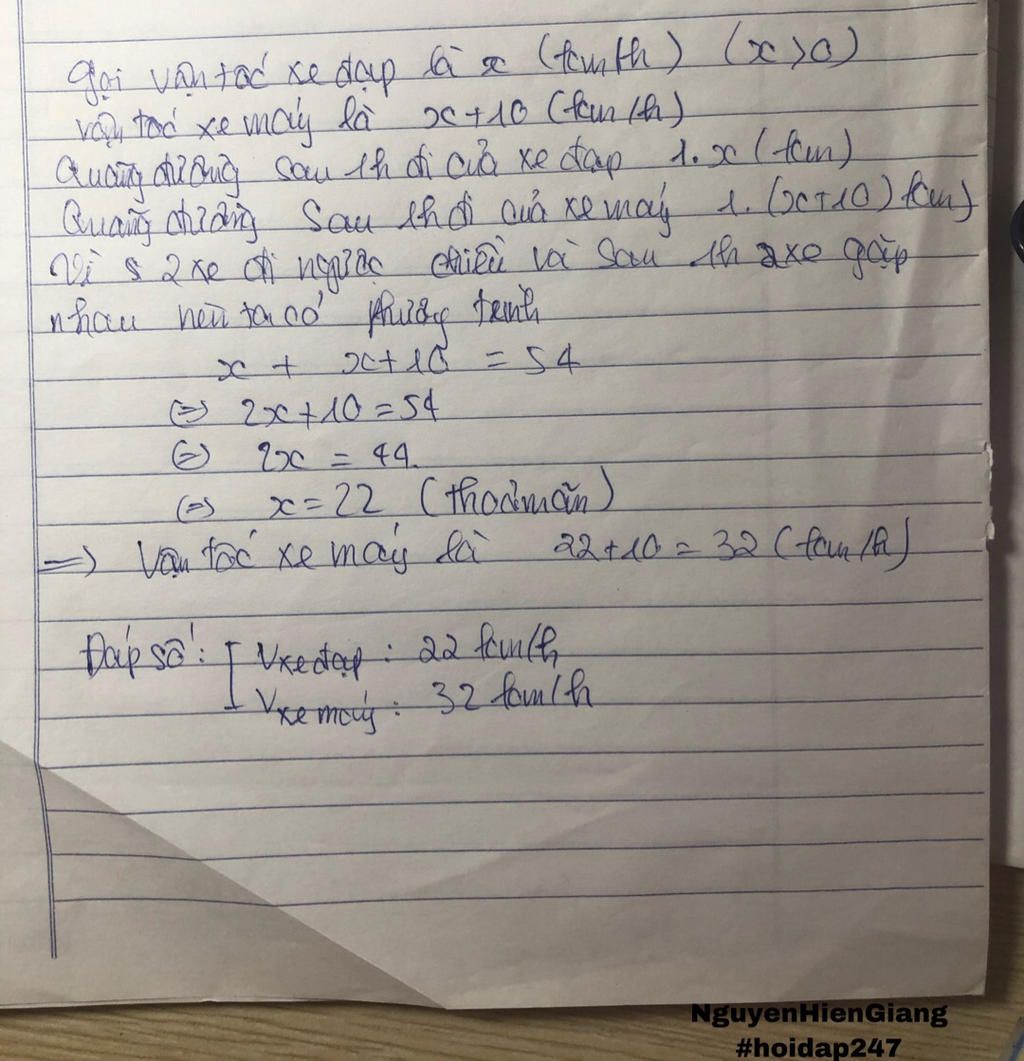 Gọi vận tốc xe đạp là x (km/h) (x>0)
vận tốc xe máy là x+10 (km/h)
Quãng đường sau 1h đi của xe đạp 1.x (km)
Quãng đường sau 1h đi của xe máy 1.(x+10) km)
Vì s 2 xe đi ngược chiều và sau 1h 2xe gặp
nhau nên ta có phương trình
x + x+10 = 54
(=) 2x+10=54
(=) 2x = 44.
(=) x=22 (thoả mãn)
=> Vận tốc xe máy là 22+10=32 (km/h)
Đáp số: [ Vxe đạp : 22 km/h
Vxe máy : 32 km/h
NguyenHienGiang
#hoidap247